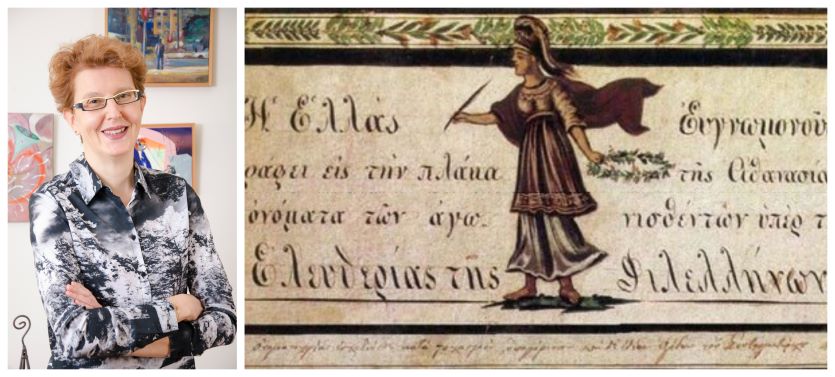 Ἡ Ἑλλὰς Εὐγνωμονοῦ
ράφει εἰς τὴν πλάκα τῆς Ἀθανασία
ὀνόματα τῶν ἀγω_ νισθέντων ὑπὲρ τ
Ἐλευθερίας τῆς Φιλελλήνων